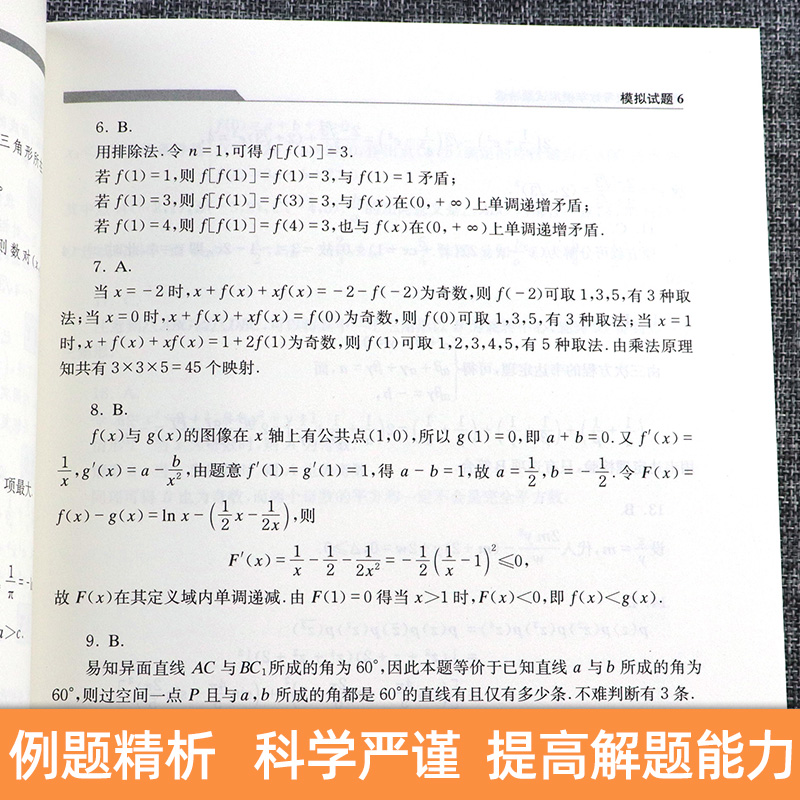 模拟试题 6
三角形所
则数对(
项最大
a>c.
6. B.
用排除法.令 n=1,可得 f[f(1)]=3.
若 f(1)=1,则 f[f(1)]=f(1)=3,与 f(1)=1 矛盾;
若 f(1)=3,则 f[f(1)]=f(3)=3,与 f(x)在(0,+∞)上单调递增矛盾;
若 f(1)=4,则 f[f(1)]=f(4)=3,也与 f(x)在(0,+∞)上单调递增矛盾.
7. A.
当 x=-2 时,x+f(x)+xf(x)=-2-f(-2)为奇数,则 f(-2)可取 1,3,5,有 3 种取
法;当 x=0 时,x+f(x)+xf(x)=f(0)为奇数,则 f(0)可取 1,3,5,有 3 种取法;当 x=1
时,x+f(x)+xf(x)=1+2f(1)为奇数,则 f(1)可取 1,2,3,4,5,有 5 种取法.由乘法原理
知共有 3×3×5=45 个映射.
8. B.
f(x)与 g(x)的图像在 x 轴上有公共点(1,0),所以 g(1)=0,即 a+b=0.又 f′(x)=
1/x,g′(x)=a-b/x²,由题意 f′(1)=g′(1)=1,得 a-b=1,故 a=1/2,b=-1/2.令 F(x)=
f(x)-g(x)=ln x-(1/2x-1/2x),则
F′(x)=1/x-1/2-1/2x²=-1/2(1/x-1)²≤0,
故 F(x)在其定义域内单调递减.由 F(1)=0 得当 x>1 时,F(x)<0,即 f(x)<g(x).
9. B.
易知异面直线 AC 与BC₁所成的角为 60°,因此本题等价于已知直线 a 与b 所成的角为
60°,则过空间一点 P 且与a,b 所成的角都是 60°的直线有且仅有多少条.不难判断有 3 条.
例题精析 科学严谨 提高解题能力